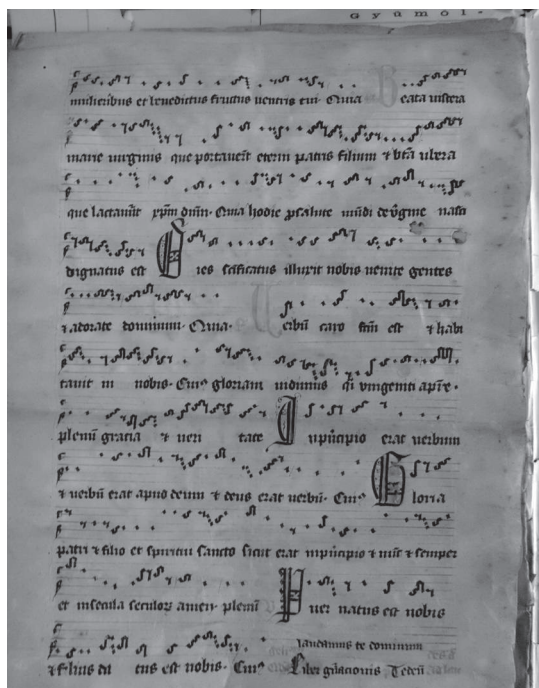 G y ā m o l .
mulieribus et benedictus fructus ventris tui · Quia Beata viscera
marie virginis que portauerūt eterni patris filium ⁊ btā ubera
que lactauerūt xp̄m dn̄m · Quia hodie ꝓ salute mūdi de v̄gine nasci
dignatus est Dies sc̄ificatus illuxit nobis uenite gentes
⁊ adorate dominum · Quia · Verbū caro fc̄m est ⁊ habi
tauit in nobis · Cuiꝰ gloriam uidimus q̄i vnigeniti a pr̄e ·
plenū gracia ⁊ veri tate In pͥncipio erat verbum
⁊ verbū erat apud deum ⁊ deus erat verbū · Cuiꝰ Gloria
patri ⁊ filio et spiritui sancto sicut erat in pͥncipio ⁊ nūc ⁊ semper
et in secula seculorꝝ amen · plenū Puer natus est nobis
⁊ filius da tus est nobis · Cuiꝰ
laudamus te dominum
Liber gn̄acionis Te deū